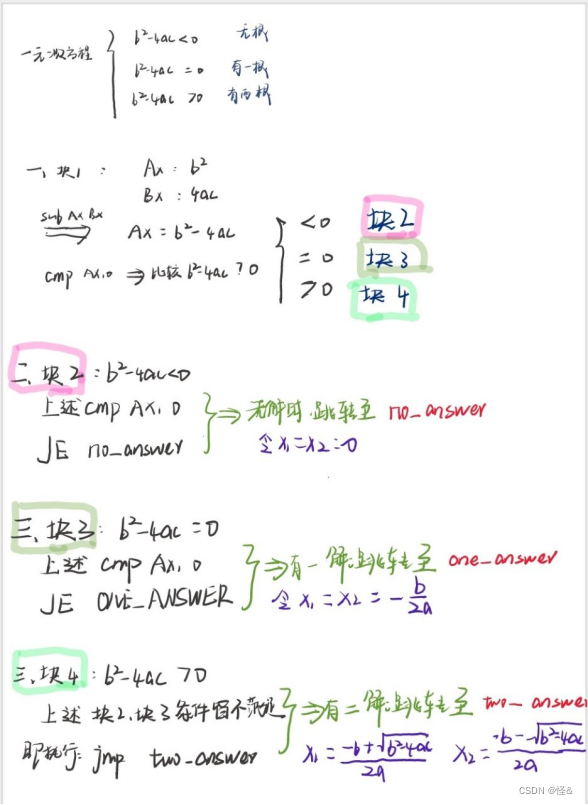 b²-4ac<0 无根
一元二次方程 b²-4ac =0 有一根
b²-4ac >0 有两根
一、块1: Ax: b²
Bx: 4ac
sub Ax Bx
⇒ Ax = b²-4ac
<0 块2
cmp Ax,0 ⇒ 比较 b²-4ac ? 0
=0 块3
>0 块4
二、块2: b²-4ac<0
上述cmp Ax, 0 ⇒ 无解时,跳转至 no_answer
JE no_answer 令 x₁=x₂=0
三、块3: b²-4ac =0
上述 cmp Ax, 0 ⇒ 有一解:跳转至 one_answer
JE ONE_ANSWER 令 x₁=x₂ = -b/2a
三、块4: b²-4ac >0
上述 块2、块3 条件皆不满足 ⇒ 有二解:跳转至 two_answer
即执行: jmp two_answer x₁= (-b+√(b²-4ac))/2a x₂= (-b-√(b²-4ac))/2a
CSDN @怪&